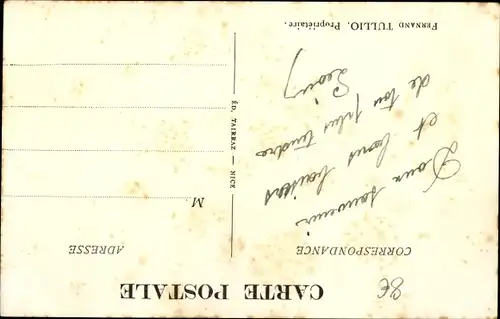 8€
CARTE POSTALE
CORRESPONDANCE
ADRESSE
Doux souvenir
et bons baisers
de ton plus tendre
M.
ÉD. TAIRRAZ — NICE
FERNAND TULLIO, Propriétaire.